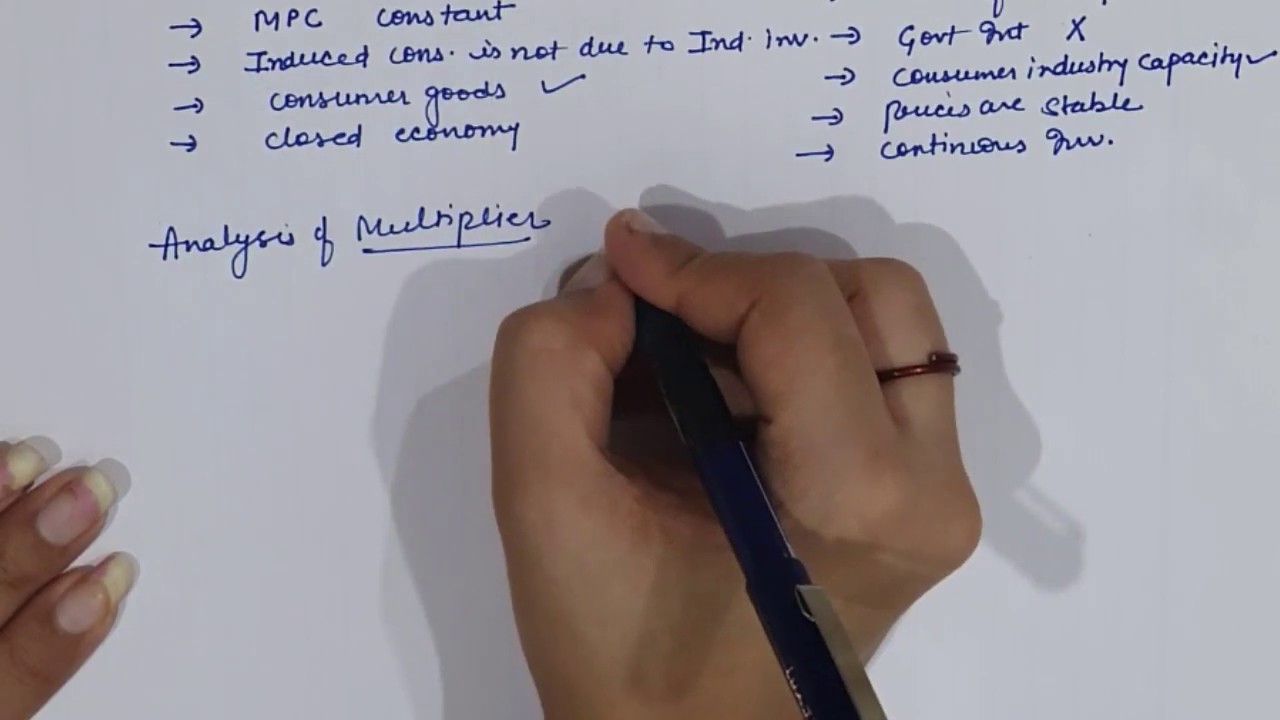 → MPC constant
→ Induced cons. is not due to Ind. inv.
→ consumer goods ✓
→ closed economy
→ Govt Int X
→ consumer industry capacity ✓
→ prices are stable
→ continuous Inv.
Analysis of Multiplier